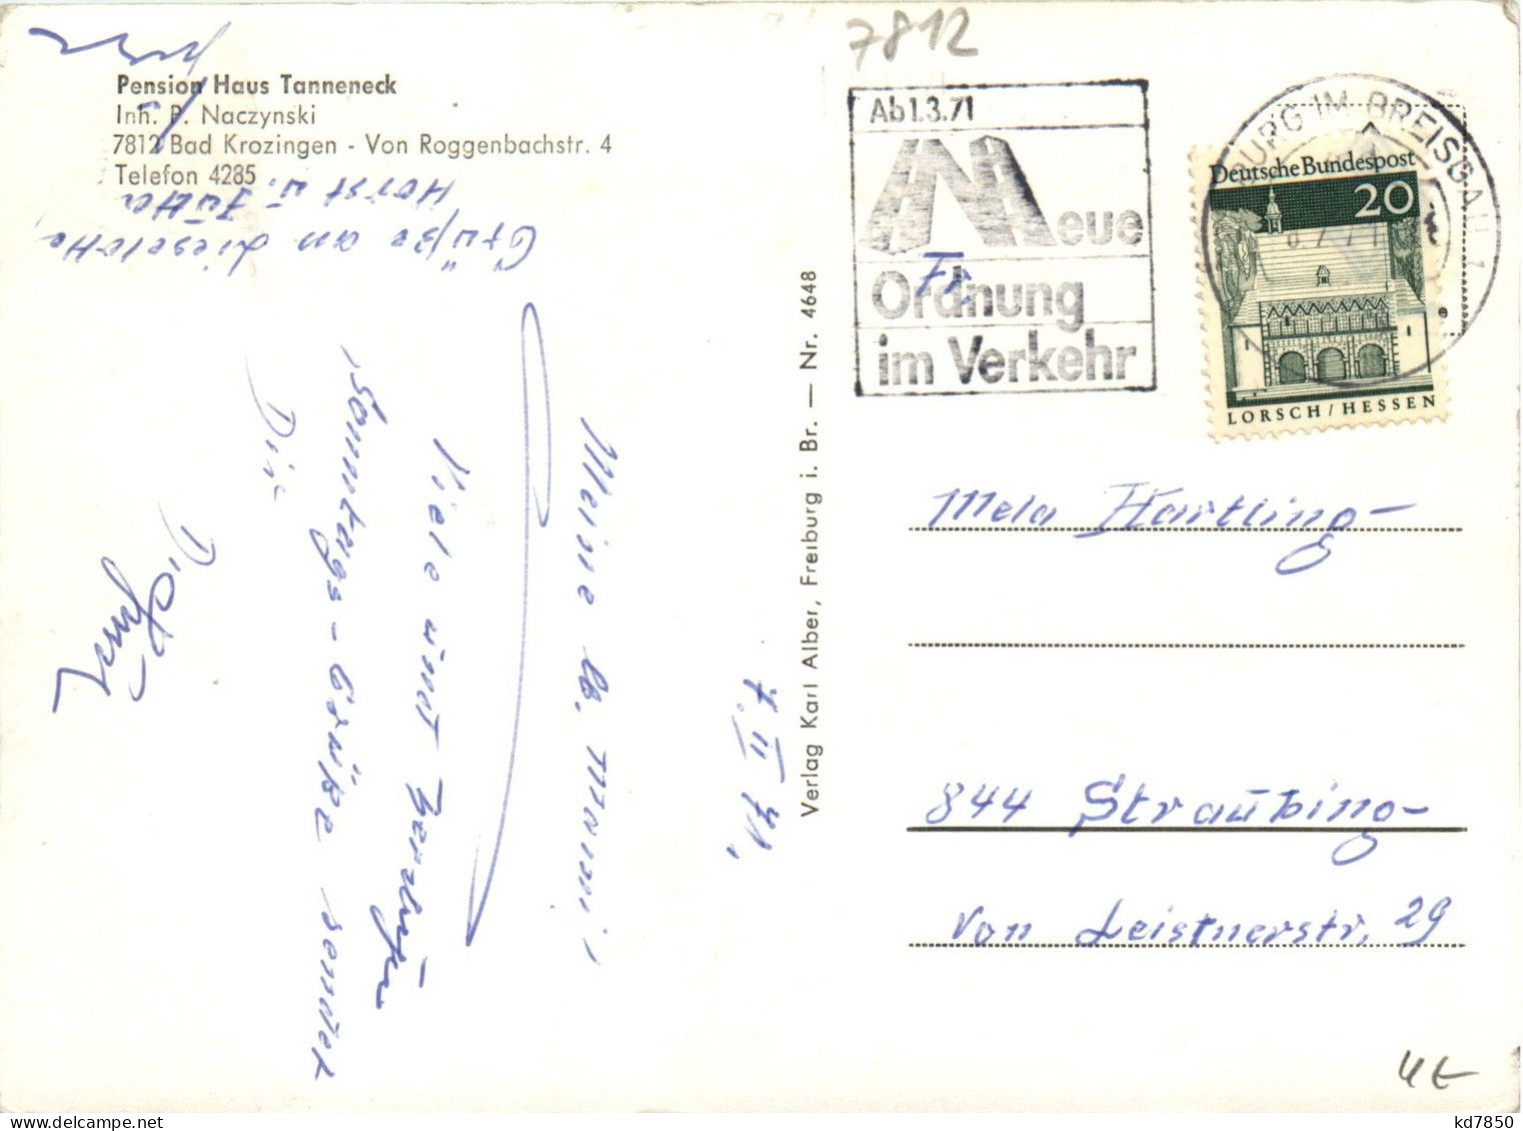 7812
Pension Haus Tanneneck
Inh. P. Naczynski
7812 Bad Krozingen - Von Roggenbachstr. 4
Telefon 4285
Ab 1.3.71
Neue
Ordnung
im Verkehr
BURG IM BREISGAU 1
Deutsche Bundespost
20
LORSCH/HESSEN
Verlag Karl Alber, Freiburg i. Br. — Nr. 4648
7. II 71.
Meine lb. Mammi!
Viele und
Sonntags-Grüße sendet
Dir
Dich
Grüße an Lieselotte
Horst u.
Fr.
Mela Hartling-
844 Straubing-
Von Leistnerstr. 29
4€
kd7850